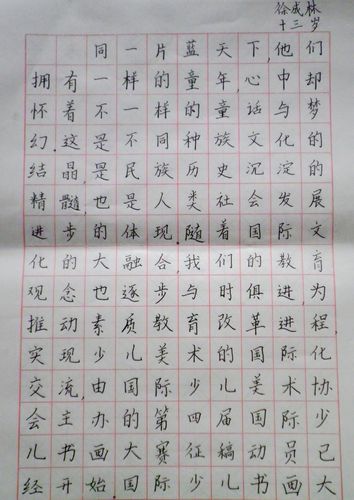 徐成林
十三岁
同一片蓝天下,他们
拥有一样的童年,心中却
怀着不一样的童话与梦
幻.这是不同种族文化的
结晶,是民族历史沉淀的
精髓,也是人类社会发展
进步的体现.随着国际文
化的大融合,我们的教育
观念也逐步与时俱进,为
推动素质教育改革进程,
实现少儿美术的国际化
交流,由国际少儿美术协
会主办的第四届国际少
儿书画大赛征稿动员已
经开始国际少儿书画大